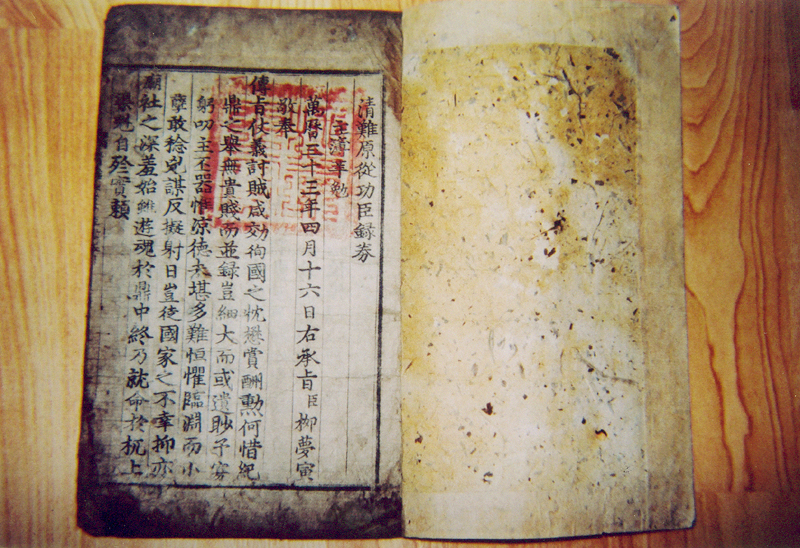 清難原從功臣録券
主簿 勉
萬曆三十三年四月十六日右承旨臣柳夢寅
敬奉
傳旨仗義討賊咸効徇國之忱懋賞酬勲何惜紀
鼎之擧無貴賤而並録豈細大而或遺眇予寡
躬叨主丕器惟涼德未堪多難恒懼臨淵而小
孽敢稔兇謀反擬射日豈徒國家之不幸抑亦
廟社之深羞始雖遊魂於鼎中終乃就命於机上
渠魁自殄實賴